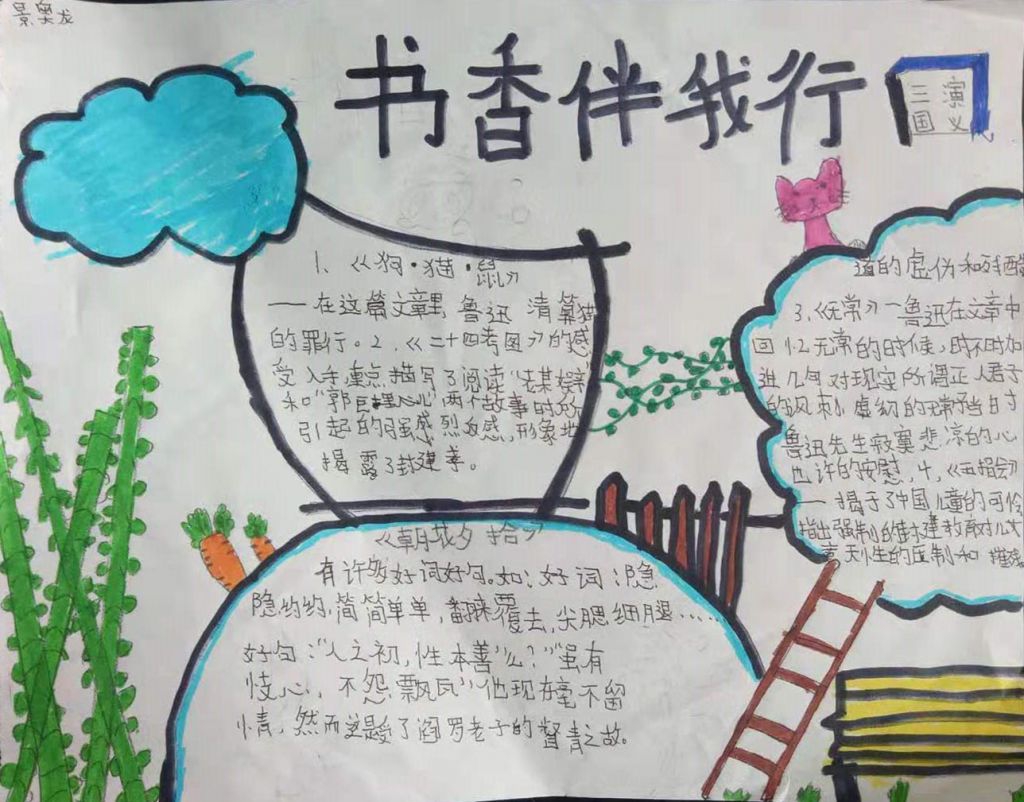 景奥龙
书香伴我行
三 演
国 义
1、《狗·猫·鼠》
——在这篇文章里,鲁迅 清算猫
的罪行。2、《二十四孝图》的感
受入手,重点描写了阅读"老莱娱亲"
和"郭巨埋儿"两个故事时所
引起的强感烈反感,形象地
揭露了封建孝
道的虚伪和残酷
3、《无常》一鲁迅在文章中
回忆无常的时候,时不时加
进几句对现实所谓正人君子
的讽刺,虚幻的无常给当时
鲁迅先生寂寞悲凉的心
也许的安慰,4、
一揭于了中国儿童的可怜
指出强制的封建教育对儿
天性的压制和 摧残
《朝花夕拾》
有许够好词好句,如:好词:隐
隐约约,简简单单,翻来覆去,尖腮细腿……
好句:"人之初,性本善"么?"虽有
忮心,不怨飘瓦"他现在毫不留
情,然而这是受了阎罗老子的督责之故。